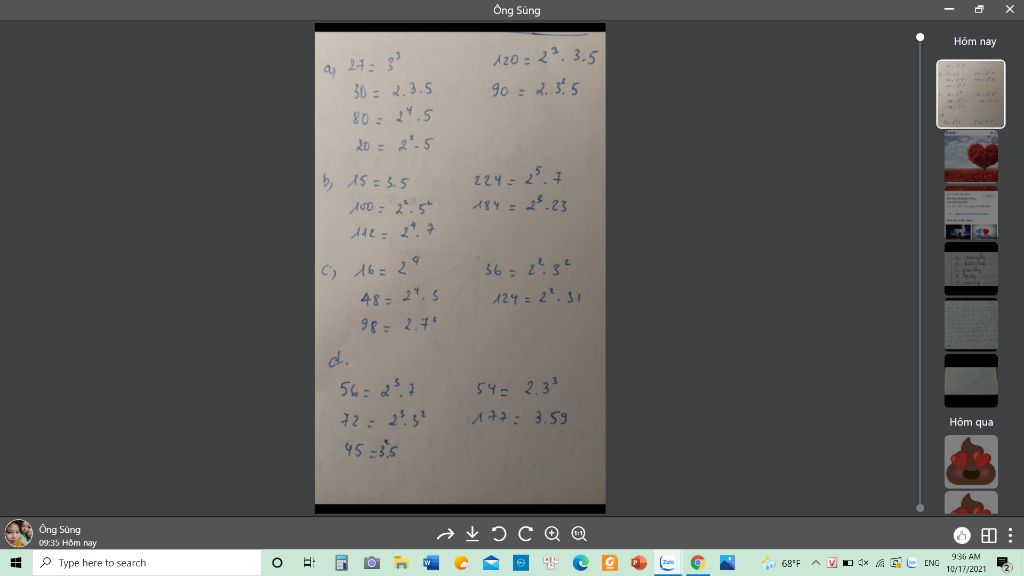 Ông Sùng
Hôm nay
a) 27 = 3³
30 = 2.3.5
80 = 2⁴.5
20 = 2².5
120 = 2³.3.5
90 = 2.3².5
b) 15 = 3.5
100 = 2².5²
112 = 2⁴.7
224 = 2⁵.7
184 = 2³.23
c) 16 = 2⁴
48 = 2⁴.3
98 = 2.7²
36 = 2².3²
124 = 2².31
d.
56 = 2³.7
72 = 2³.3²
45 = 3².5
54 = 2.3³
177 = 3.59
Hôm qua
Ông Sùng
09:35 Hôm nay
1:1
Type here to search
Zalo
68°F
ENG
9:36 AM
10/17/2021
2